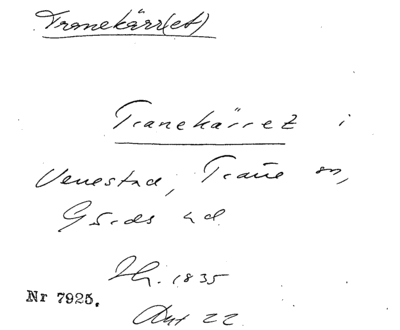 Tranekärr(et)
Tranekärret i
Venestad, Träne sn,
Gärds hd.
1835
Nr 7925.
Akt 22